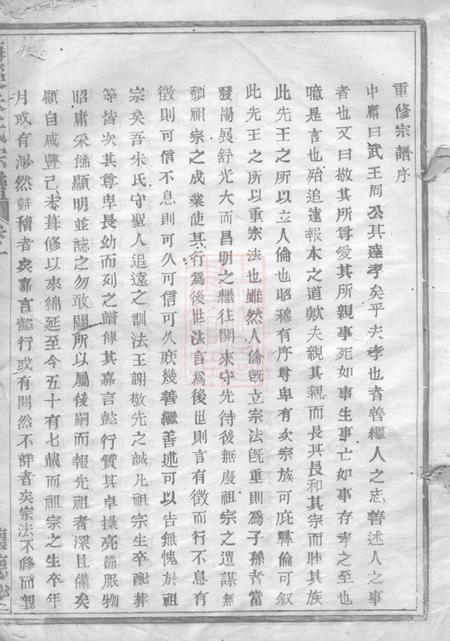 重修宗譜序
中庸曰武王周公其達孝矣乎夫孝也者善繼人之志善述人之事
者也又曰敬其所尊愛其所親事死如事生事亡如事存孝之至也
噫是言也殆追遠報本之道歟夫親其親而長其長和其宗而睦其族
此先王之所以立人倫也昭穆有序尊卑有次宗族可庇彞倫可叙
此先王之所以重宗法也雖然人倫旣立宗法旣重則為子孫者當
發揚展舒光大而昌明之繼往開來守先待後無廢祖宗之遺謀無
頹祖宗之成業使其行為後世法言為後世則言有徵而行不息有
徵則可信不息則可久可信可久庶幾善繼善述可以告無愧於祖
宗矣吾朱氏守聖人追遠之訓法王謝敬先之誠凡祖宗生卒配葬
等皆次其尊卑長幼而列之譜傳其嘉言懿行贊其卓操亮節服物
昭庸采飾顯明並誌之勿敢闕所以屬後嗣而報先者深且備矣
顧自咸豐己未葺修以來綿延至今五十有七載而祖宗之生卒年
月或有渺然難稽者矣嘉言懿行或有闕然不詳者矣宗法不修而親